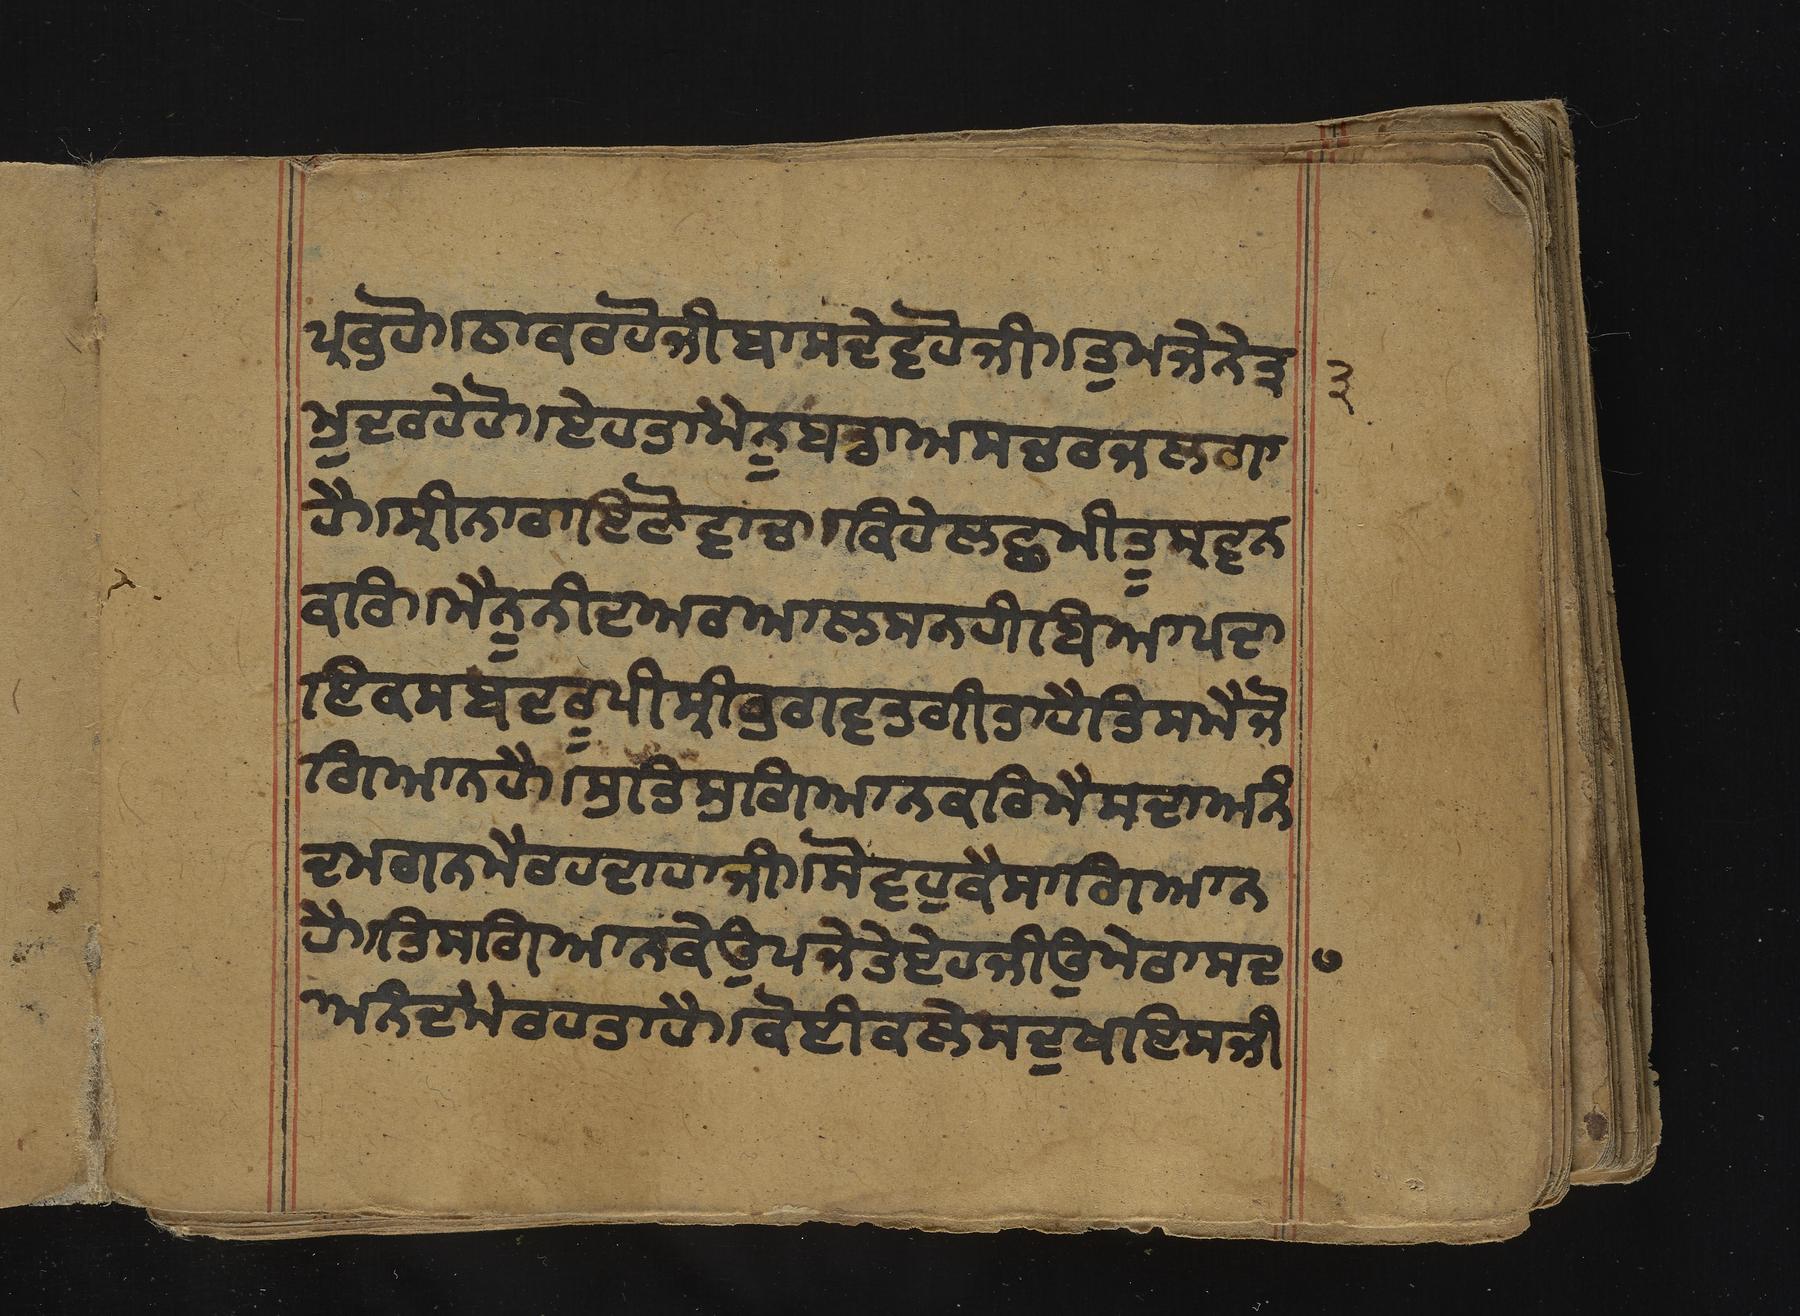 ਪ੍ਰਭੁਹੋ॥ਠਾਕਰਹੋਜੀਬਾਸਦੇਵਹੋਜੀ॥ਤੁਮਜੋਨੇਤ੍ਰ ੩
ਮੁਦਰਹੇਹੋ॥ਏਹਤਾਮੇਨੂਬਡਾਅਸਚਰਜਲਗਾ
ਹੈ॥ਸ੍ਰੀਨਾਰਾਇਣੋਵਾਚ॥ਕਿਹੇਲਛਮੀਤੂਸ੍ਰਵਨ
ਕਰਿ॥ਮੈਨੂਨੀਦਅਰਆਲਸਨਹੀਬਿਆਪਦਾ
ਇਕਸਬਦਰੂਪੀਸ੍ਰੀਭਗਵਤਗੀਤਾਹੈਤਿਸਮੈਜੋ
ਗਿਆਨਹੈ॥ਸੁਤਿਸੁਗਿਆਨਕਰਿਮੈਸਦਾਅਨੰ
ਦਮਗਨਮੈਰਹਦਾਹਾਜੀ॥ਸੋਵਹੁਕੈਸਾਗਿਆਨ
ਹੈ॥ਤਿਸਗਿਆਨਕੇਉਪਜੇਤੇਏਹਜੀਉਮੇਰਾਸਦ ੭
ਅਨੰਦਮੇਰਹਤਾਹੈ॥ਕੋਈਕਲੇਸਦੂਖਇਸਜੀ